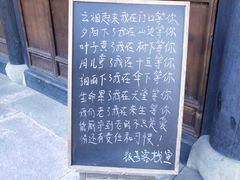 云烟起来我在门口等你
夕阳下了我在山边等你
叶子黄了我在树下等你
月儿弯了我在十五等你
细雨下了我在伞下等你
生命累了我在天堂等你
我们老了我在来生等你
能厮守到老的不只是爱
你还有责任和习惯！
客栈宣